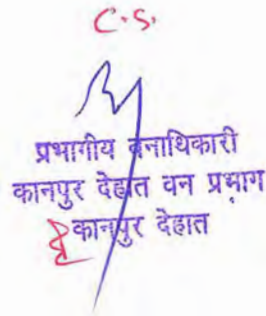 C.S.
प्रभागीय वनाधिकारी
कानपुर देहात वन प्रभाग
कानपुर देहात